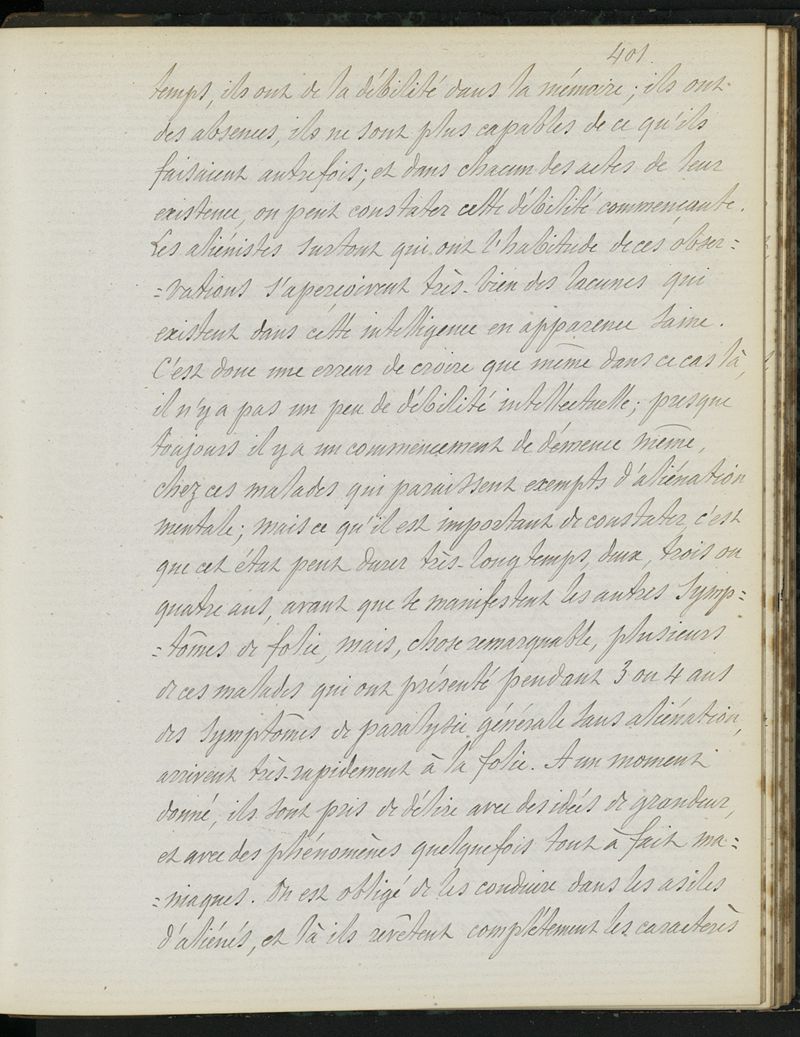 401.
temps, ils ont de la débilité dans la mémoire ; ils ont
des absences, ils ne sont plus capables de ce qu'ils
faisaient autrefois ; et dans chacun des actes de leur
existence, on peut constater cette débilité commençante.
Les aliénistes surtout qui ont l'habitude de ces obser=
=vations s'aperçoivent très-bien des lacunes qui
existent dans cette intelligence en apparence saine.
C'est donc une erreur de croire que même dans ce cas là,
il n'y a pas un peu de débilité intellectuelle ; presque
toujours il y a un commencement de démence même,
chez ces malades qui paraissent exempts d'aliénation
mentale ; mais ce qu'il est important de constater, c'est
que cet état peut durer très-longtemps, deux, trois ou
quatre ans, avant que se manifestent les autres symp=
=tômes de folie, mais, chose remarquable, plusieurs
de ces malades qui ont présenté pendant 3 ou 4 ans
des symptômes de paralysie générale sans aliénation,
arrivent très-rapidement à la folie. A un moment
donné, ils sont pris de délire avec des idées de grandeur,
et avec des phénomènes quelquefois tout à fait ma=
=niaques. On est obligé de les conduire dans les asiles
d'aliénés, et là ils revêtent complètement les caractères